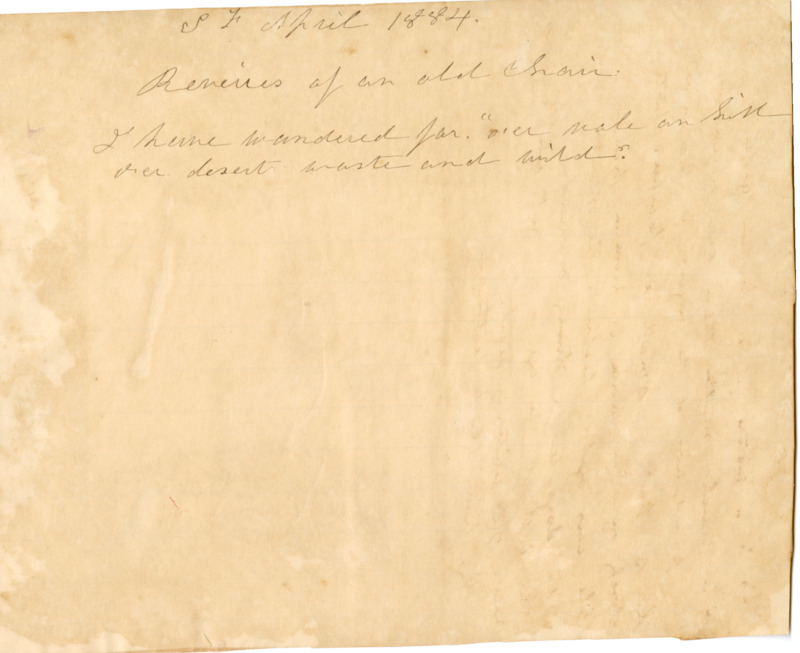 S F April 1884.
Reveries of an old Chair.
I have wandered far. "o'er vale an hill
o'er desert waste and wild".